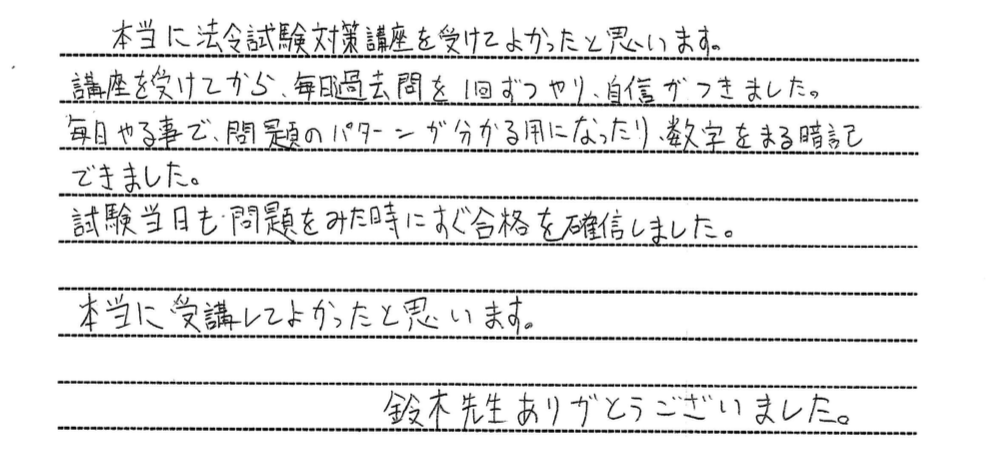 本当に法令試験対策講座を受けてよかったと思います。
講座を受けてから、毎日過去問を1回ずつやり、自信がつきました。
毎日やる事で、問題のパターンが分かる用になったり、数字をまる暗記
できました。
試験当日も問題をみた時にすぐ合格を確信しました。
本当に受講してよかったと思います。
鈴木先生ありがとうございました。